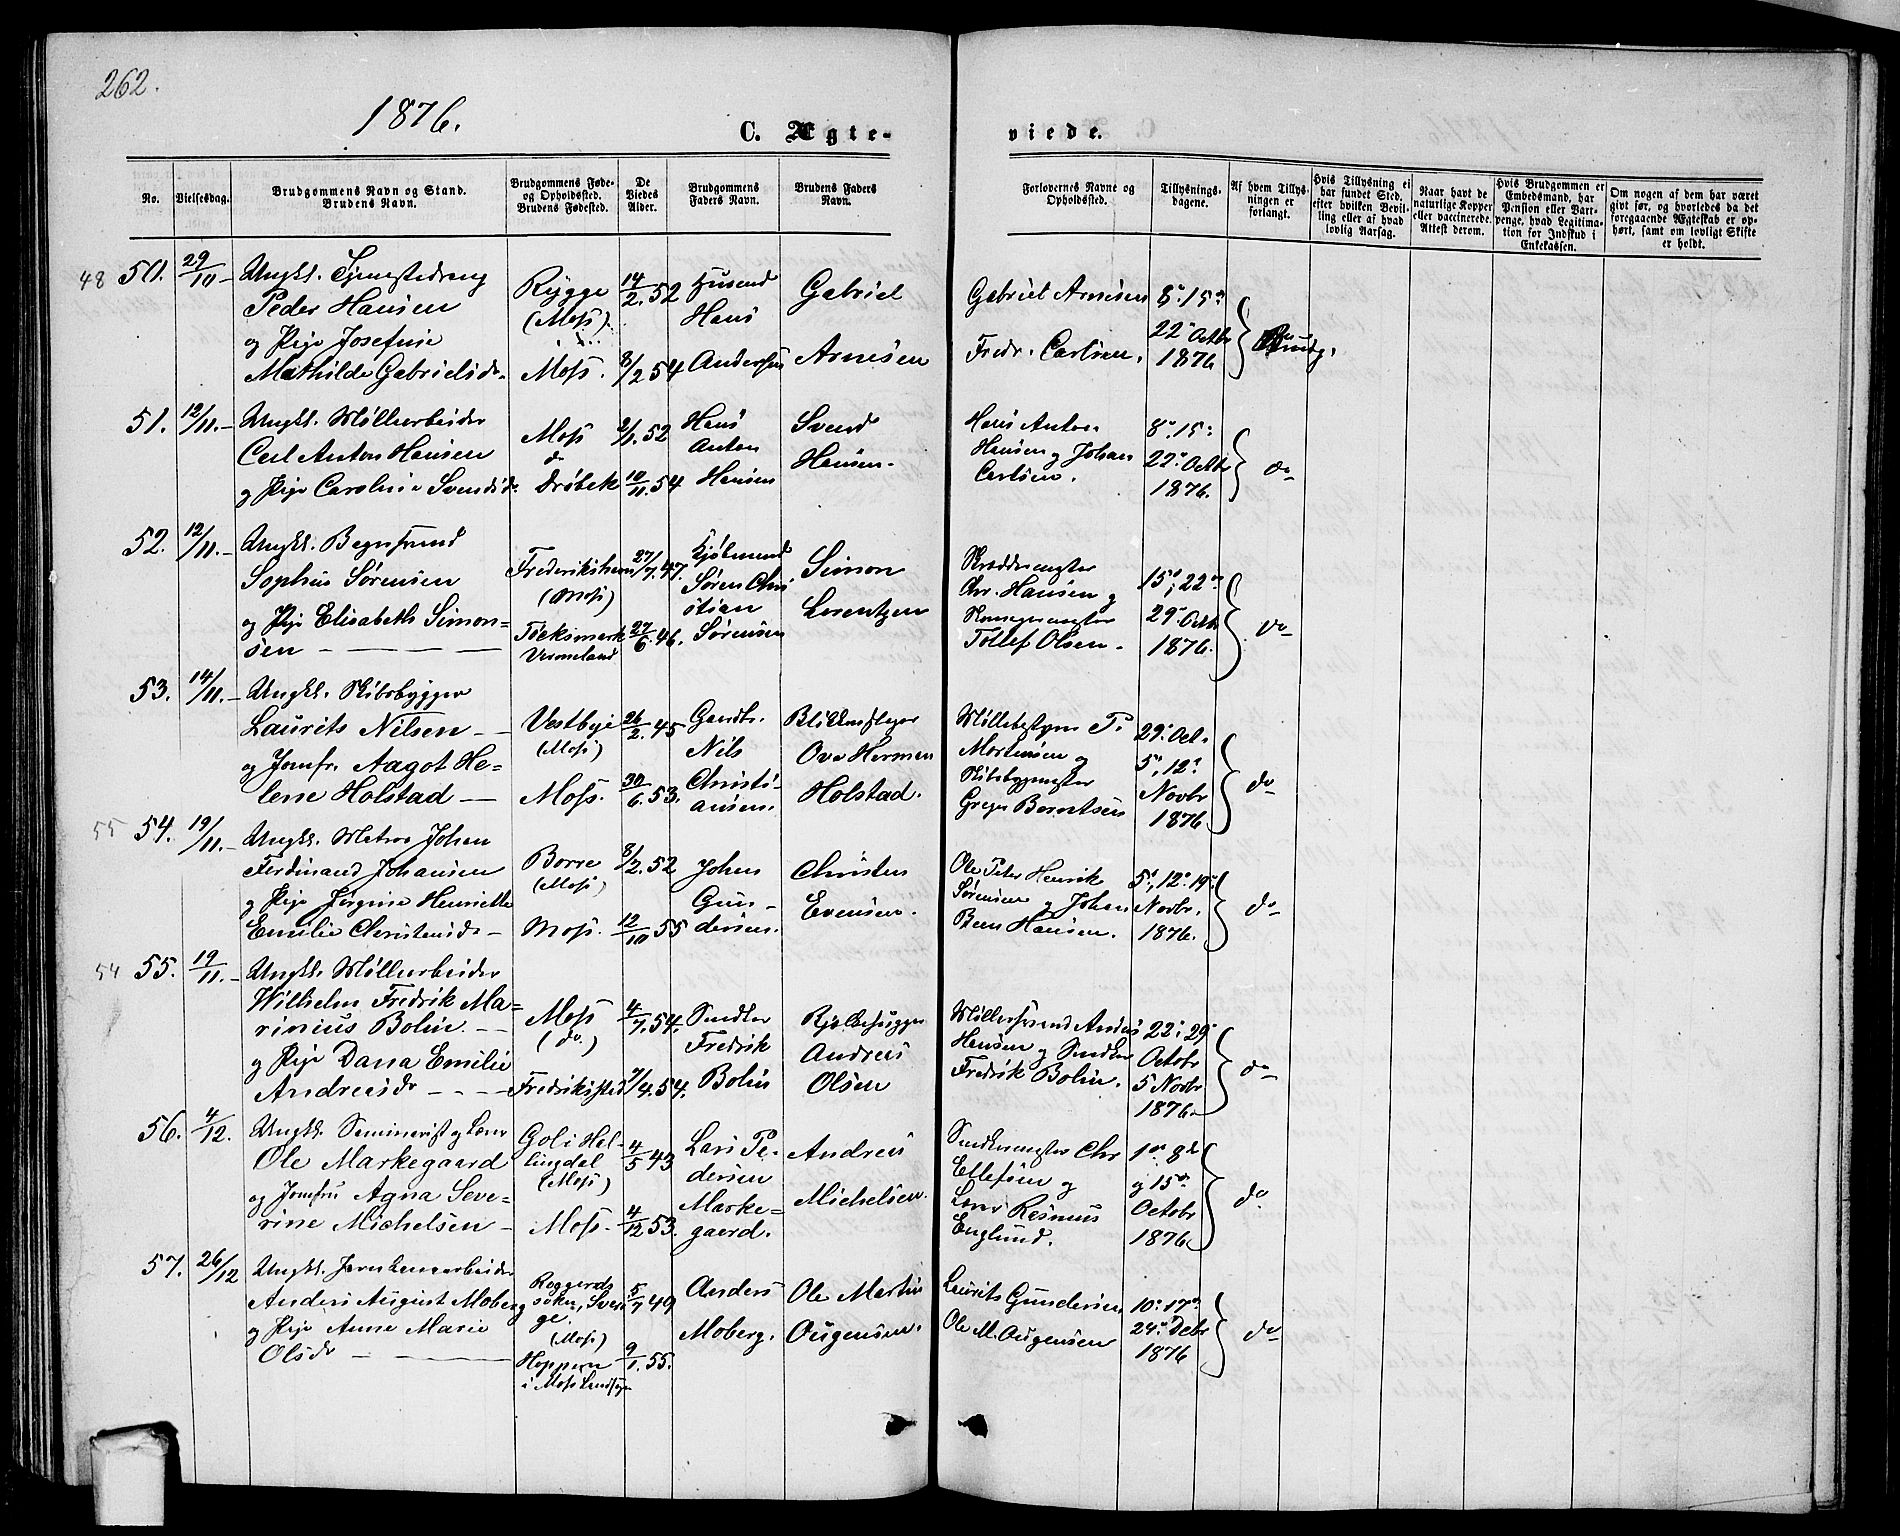 262.
1876.
C. Ægte-
viede.
No.
Vielsesdag.
Brudgommens Navn og Stand.
Brudens Navn.
Brudgommens Føde-
og Opholdssted.
Brudens Fødested.
De
Viedes
Alder.
Brudgommens
Faders Navn.
Brudens Faders
Navn.
Forlovernes Navne og
Opholdssted.
Tillysnings-
dagene.
Af hvem Tillys-
ningen er
forlangt.
Hvis Tillysning ei
har fundet Sted,
efter hvilken Bevil-
ling eller af hvad
lovlig Aarsag.
Naar havt de
naturlige Kopper
eller vaccinerede.
Attest derom.
Hvis Brudgommen er
Embedsmand, har
Pension eller Vart-
penge, hvad Legitima-
tion for Indskud i
Enkekassen.
Om nogen af dem har været
gift før, og hvorledes da det
foregaaende Ægteskab er op-
hørt, samt om lovligt Skifte
er holdt.
48 50. 29/10
Ungk. Tjenestedreng
Peder Hansen
og Pige Josefine
Mathilde Gabrielsdr.
Rygge
(Moss)
Moss.
14/2. 52
8/2 54
Husmd
Hans
Andersen
Gabriel
Arnesen
Gabriel Arnesen
Fredr. Carlsen.
8. 15.
22. Octbr
1876
Brudg.
51. 12/11.
Ungk. Møllearbeider
Carl Anton Hansen
og Pige Caroline Svendsdr.
Moss
do
Drøbak
2/1. 52
10/11. 54
Hans
Anton
Hansen
Svend
Hansen.
Hans Anton
Hansen og Johan
Carlsen.
8. 15.
22. Octbr
1876.
do
52. 12/11.
Ungk.
Sophus Sørensen
og Pige Elisabeth Simon-
sen
Frederikshavn
(Moss)
Töcksmark
Vermeland
27/7. 47.
27/6. 46.
Kjøbmand
Søren Chri
stian
Sørensen
Simon
Lorentzen
Skreddermester
Chr. Hansen og
Skomagermester
Tollef Olsen.
15, 22
29. Octbr
1876.
do
53. 14/11.
Ungk. Skibsbygger
Laurits Nilsen
og Jomfr. Aagot He-
lene Holstad
Vestbye
(Moss)
Moss.
26/2. 45
30/6. 53.
Gaardbr.
Nils
Christi-
ansen.
Blikkenslager
Ove Herman
Holstad.
Møllebestyrer P.
Mortensen og
Skibsbyggmester
Gregers Berentsen
29. Oct.
5, 12.
Novbr
1876
do
55 54. 19/11.
Ungk. Matros Johan
Ferdinand Johansen
og Pige Jørgine Henriette
Emilie Christensdr
Borre
(Moss)
Moss.
8/2. 52
12/10 55
Johan
Gun-
dersen.
Christen
Evensen.
Ole Peter Henrik
Sørensen og Johan
Hansen.
5, 12. 19.
Novbr.
1876.
do
54 55. 19/11.
Ungk. Møllearbeider
Wilhelm Fredrik Ma-
rinius Bolin.
og Pige Dana Emilie
Andreasdr
Moss
(do.)
Fredriksstad
4/7. 54.
7/4. 54.
Snedker
Fredrik
Bolin
Andreas
Olsen
Hansen og Snedker
Fredrik Bolin.
22. 29
Octobr
5 Novbr
1876.
do
56. 4/12.
Ungk. Seminarist og Lærer
Ole Markegaard
og Jomfru Agna Seve-
rine Michelsen
Gol i Hal-
lingdal
(Moss)
Moss
4/5 43
4/12 53.
Lars Pe-
dersen
Marke-
gaard.
Andreas
Michelsen.
Snedkermester Chr
Ellefsen og
Lærer Rasmus
Englund.
1. 8d
og 15
Octobr
1876
do
57. 26/12
Ungk. Jernbanearbeider
Anders August Moberg
og Pige Anne Marie
Olsdr
Roggerds
soken, Sveri
ge.
(Moss)
Hoppern
i Moss Landsogn
5/7 49
9/1. 55.
Anders
Moberg.
Ole Martin
Augensen.
Laurits Gundersen
Ole M. Augensen
10. 17.
24. Debr
1876
do